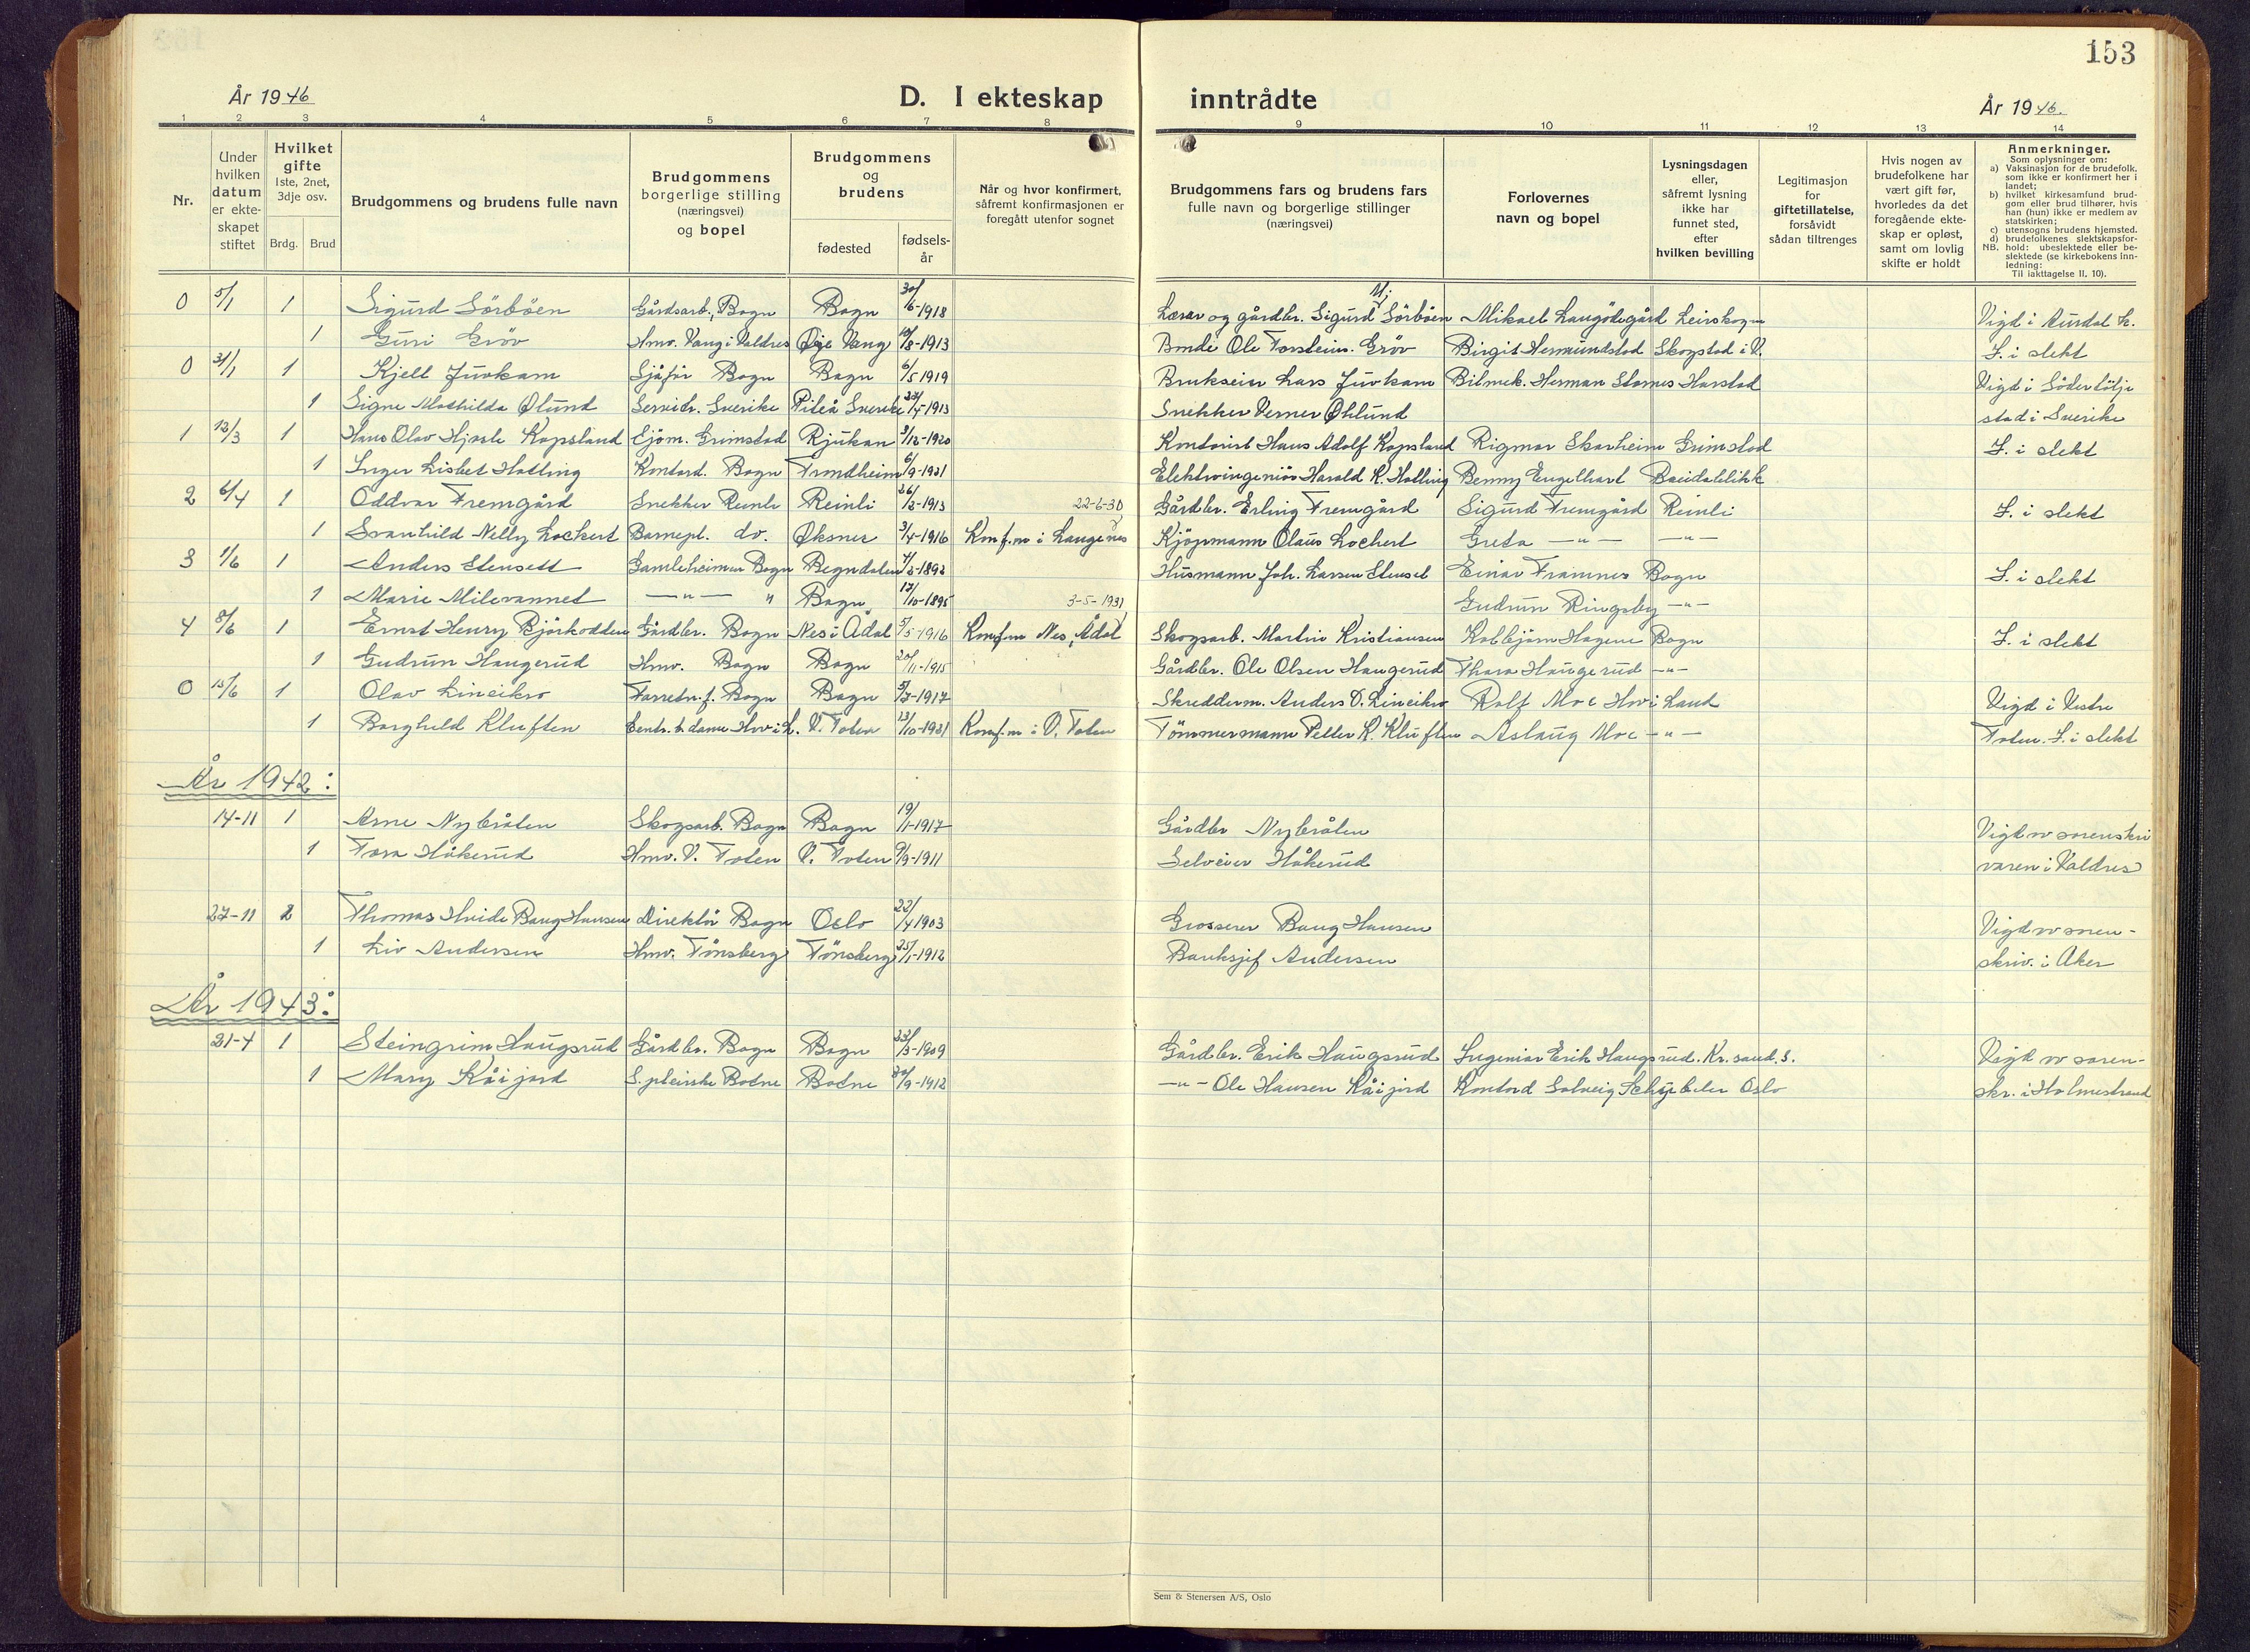 153
År 1946
D. I ekteskap inntrådte
År 1946.
1 2 3 4 5 6 7 8 9 10 11 12 13 14
Nr.
Under hvilken datum er ekteskapet stiftet
Hvilket gifte
1ste, 2net, 3dje osv.
Brdg. Brud
Brudgommens og brudens fulle navn
Brudgommens borgerlige stilling (næringsvei) og bopel
Brudgommens og brudens
fødested fødselsår
Når og hvor konfirmert, såfremt konfirmasjonen er foregått utenfor sognet
Brudgommens fars og brudens fars fulle navn og borgerlige stillinger (næringsvei)
Forlovernes navn og bopel
Lysningsdagen eller, såfremt lysning ikke har funnet sted, efter hvilken bevilling
Legitimasjon for giftetillatelse, forsåvidt sådan tiltrenges
Hvis nogen av brudefolkene har vært gift før, hvorledes da det foregående ekteskap er opløst, samt om lovlig skifte er holdt
Anmerkninger.
Som oplysninger om:
a) Vaksinasjon for de brudefolk. som ikke er konfirmert her i landet;
b) hvilket kirkesamfund brudgom eller brud tilhører, hvis han (hun) ikke er medlem av statskirken;
c) utensogns brudens hjemsted.
d) brudefolkenes slektskapsforhold: ubeslektede eller beslektede (se kirkebokens innledning:
NB.
Til iakttagelse II, 10).
0 5/1 1 Sigurd Sörböen Gårdsarb., Bagn Bagn 30/6-1918 Lærer og gårdbr. Sigurd M. Sörböen Mikael Laugödegård Leirskogn Vigd i Aurdal k.
1 Guri Gröv Hmv. Vang i Valdres Øye Vang /8-1913 Bonde Ole Torstein. Gröv Birgit Hermundstad Skogstad i V. I. i slekt
0 31/1 1 Kjell Juvkam Sjåför Bagn Bagn 6/5 1919 Brukseier Lars Juvkam Bilmek. Herman Harstad Vigd i Södertälje
1 Signe Mathilda Ølund Servitr. Sverike Piteå Sverike /4-1913 Snekker Verner Øhlund stad i Sverike
1 13/3 1 Hans Olav Kopsland Sjöm. Grimstad Rjukan /12-1920 Kontorist Hans Adolf Kopsland Rigmor Skarheim Grimstad I. i slekt
1 Inger Lisbet Hotling Kontord. Bagn Trondheim 6/9-1921 Elektroingeniör Harald K. Hotling Benny Engelhart
2 6/4 1 Oddvar Fremgård Snekker Reinli Reinli 26/2-1913 22-6-30 Gårdbr. Erling Fremgård Sigurd Fremgård Reinli I. i slekt
1 Svanhild Nelly Lockert Barnepl. do. Øksnes 3/4-1916 Konf.m i Langenes Kjöpmann Olaus Lockert Greta —"— —"—
3 1/6 1 Anders Stensett Gamleheimen Bagn Begndalen /2-1892 Husmann Joh. Larsen Stenset Einar Framnes Bagn I. i slekt
1 Marie Milevannet —"— " Bagn 17/10-1895 3-5-1931 Gudrun Ringsby —"—
4 8/6 1 Ernst Henry Björkodden Gårdbr. Bagn Nes i Ådal 5/5-1916 Konf.m Nes, Ådal Skogsarb. Martin Kristiansen Kolbjörn Hagene Bagn I. i slekt
1 Gudrun Haugerud Hmv. Bagn Bagn 20/11-1915 Gårdbr. Ole Olsen Haugerud Thora Haugerud —"—
0 15/6 1 Olav Lineikro Bagn Bagn 5/7-1917 Skredderm. Anders O. Lineikro Rolf Moe Hov i Land Vigd i Vestre
1 Borghild Kluften Sentr.b.dame Hov i L. V. Toten 13/10-1921 Konf.m i V. Toten Tömmermann Petter K. Kluften Aslaug Moe —"— Toten. I. i slekt
År 1942:
14-11 1 Arne Nybråten Skogsarb. Bagn Bagn 19/1-1917 Gårdbr Nybråten Vigd av sorenskri
1 Tora Håkerud Hmv. V. Toten V. Toten 9/9-1911 Selveier Håkerud varen i Valdres
27-11 2 Thomas Hvide Bang Hansen Direktör Bagn Oslo 22/4 1903 Grosserer Bang Hansen Vigd av soren-
1 Liv Andersen Hmv. Tönsberg Tönsberg 25/1-1912 Banksjef Andersen skriv. i Aker
År 1943:
21-4 1 Steingrim Haugsrud Gårdbr. Bagn Bagn 23/3-1909 Gårdbr. Erik Haugsrud Ingeniör Erik Haugsrud. Kr.sand.S. Vigd av soren-
1 Mary Kåijord S.pleirske Botne Botne /9-1912 —"— Ole Hansen Kåijord Kontord Solveig Schübeler Oslo skr. i Holmestrand
Sem & Stenersen A/S, Oslo